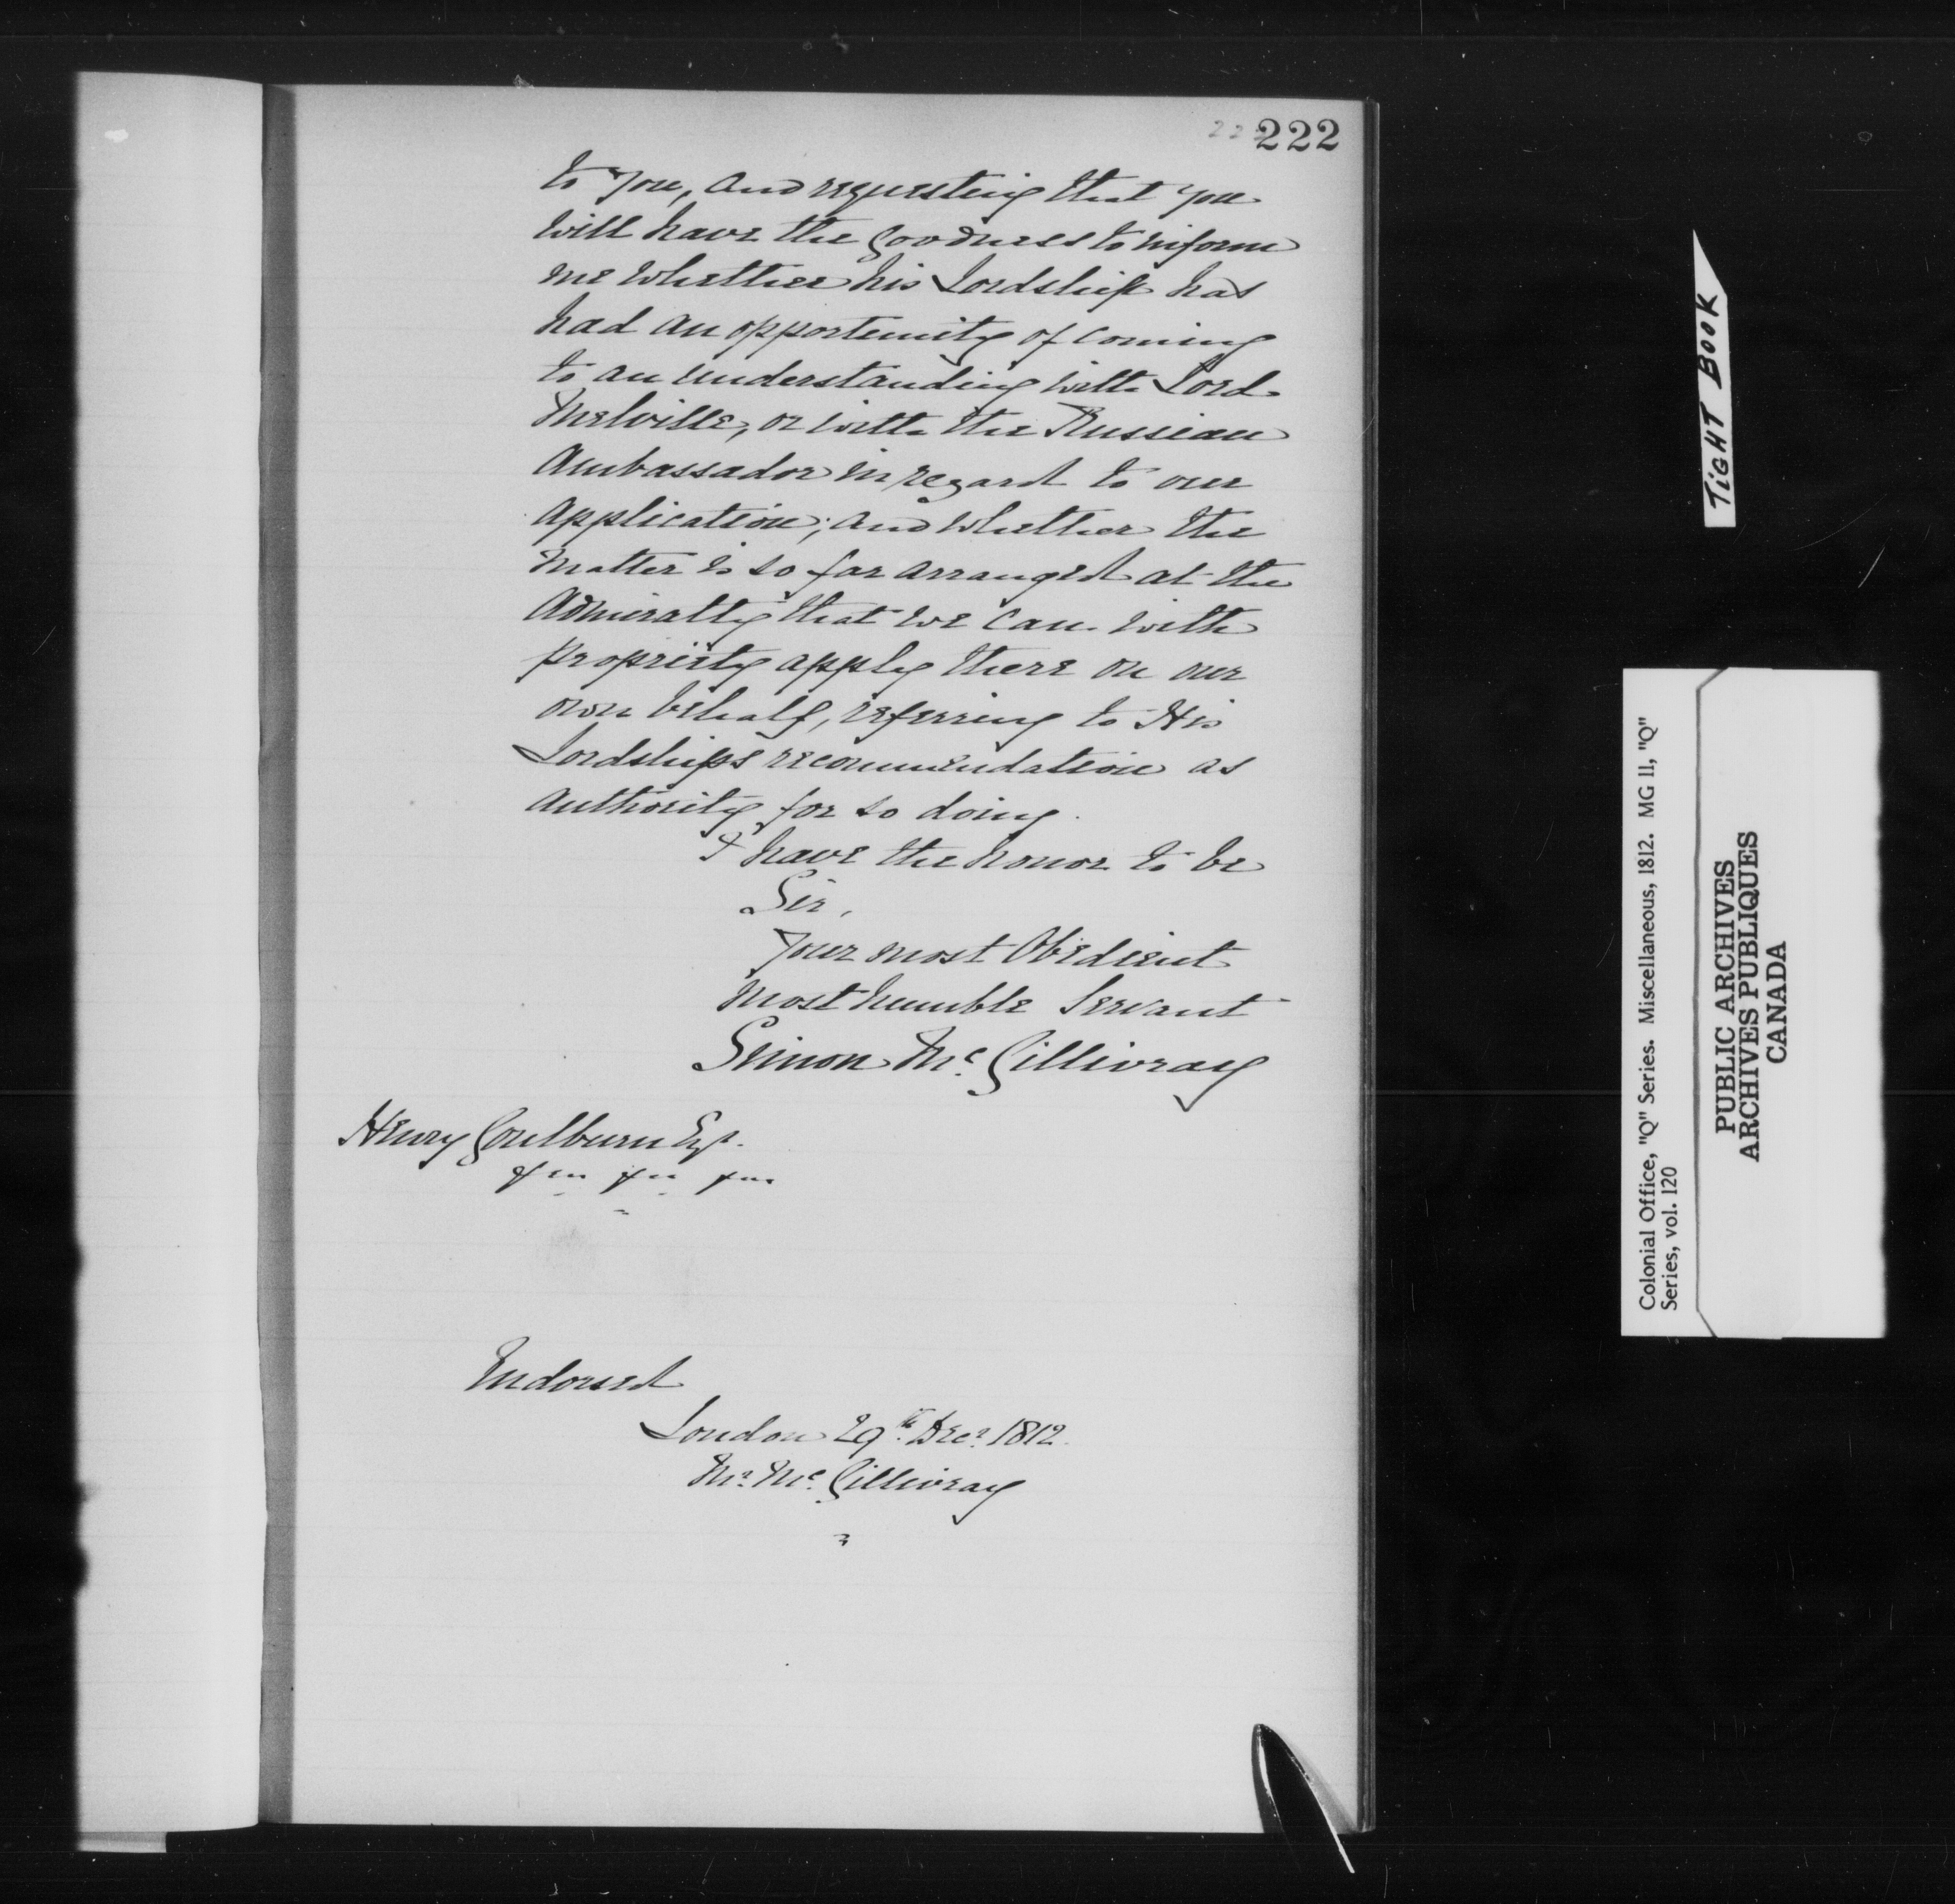 222
to you, and requesting that you
will have the goodness to inform
me whether his Lordship has
had an opportunity of coming
to an understanding with Lord
Melville, or with the Russian
Ambassador in regard to our
application; and whether the
matter is so far arranged at the
Admiralty that we can with
propriety apply there on our
own behalf, referring to His
Lordships recommendation as
authority for so doing.
I have the honor to be
Sir,
Your most Obedient
most humble Servant
Simon Mc. Gillivray
Henry Goulburn Esqr.
Endorsed
London 29th. Decr. 1812.
Mr. Mc. Gillivray
TIGHT BOOK
Colonial Office, "Q" Series. Miscellaneous, 1812. MG 11, "Q"
Series, vol. 120
PUBLIC ARCHIVES
ARCHIVES PUBLIQUES
CANADA